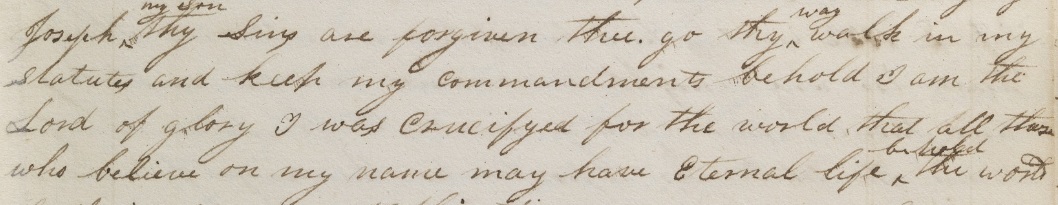 Joseph ^my son^ thy Sins are forgiven thee. go thy ^way^ walk in my
statutes and keep my commandments behold I am the
Lord of glory I was crucifyed for the world that all those
who believe on my name may have Eternal life ^behold^ the world